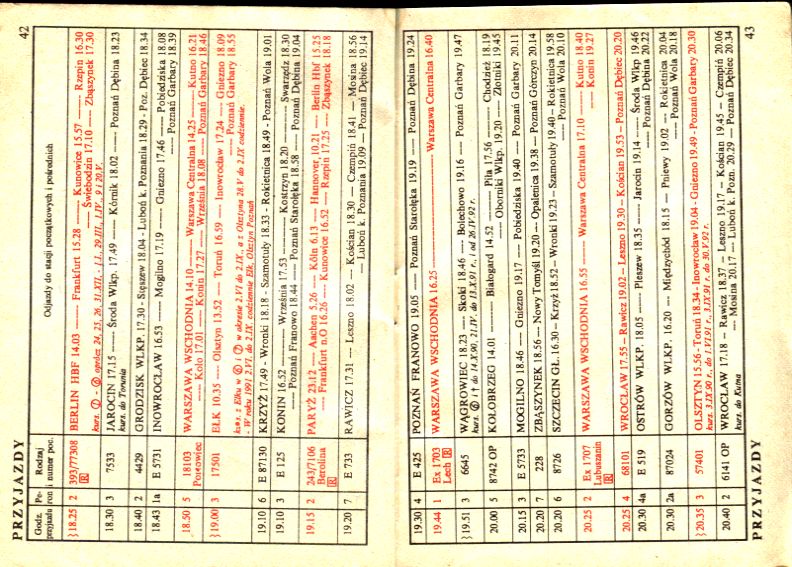 42
PRZYJAZDY
Godz. przyjazdu
Pe-ron
Rodzaj i numer poc.
Odjazdy do stacji początkowych i pośrednich
18.25 2 393/77308 R BERLIN HBF 14.03 — Frankfurt 15.28 — Kunowice 15.57 — Rzepin 16.30
— Świebodzin 17.10 — Zbąszynek 17.30
18.30 3 7533 JAROCIN 17.15 — Środa Wlkp. 17.49 — Kórnik 18.02 — Poznań Dębina 18.23
kurs. do Torunia
18.40 2 4429 GRODZISK WLKP. 17.30 - Stęszew 18.04 - Luboń k. Poznania 18.29 - Poz. Dębiec 18.34
18.43 1a E 5731 INOWROCŁAW 16.53 — Mogilno 17.19 — Gniezno 17.46 — Pobiedziska 18.08
— Poznań Garbary 18.39
18.50 5 18103 WARSZAWA WSCHODNIA 14.10 — Warszawa Centralna 14.25 — Kutno 16.21
— Koło 17.01 — Konin 17.27 — Września 18.08 — Poznań Garbary 18.46
19.00 3 17501 EŁK 10.35 — Olsztyn 13.52 — Toruń 16.59 — Inowrocław 17.24 — Gniezno 18.09
— Poznań Garbary 18.55
19.10 6 E 87130 KRZYŻ 17.49 - Wronki 18.18 - Szamotuły 18.33 - Rokietnica 18.49 - Poznań Wola 19.01
19.10 3 E 125 KONIN 16.52 — Września 17.53 — Kostrzyn 18.20 — Swarzędz 18.30
— Poznań Franowo 18.44 — Poznań Starołęka 18.58 — Poznań Dębina 19.04
19.15 2 243/7106 Berolina R PARYŻ 23.12 — Aachen 5.26 — Köln 6.13 — Hannover 10.21 — Berlin Hbf 15.25
— Frankfurt n.O 16.26 — Kunowice 16.52 — Rzepin 17.25 — Zbąszynek 18.18
19.20 7 E 733 RAWICZ 17.31 — Leszno 18.02 — Kościan 18.30 — Czempiń 18.41 — Mosina 18.56
— Luboń k. Poznania 19.09 — Poznań Dębiec 19.14
19.30 4 E 425 POZNAŃ FRANOWO 19.05 — Poznań Starołęka 19.19 — Poznań Dębina 19.24
19.44 1 Ex 1703 Lech R WARSZAWA WSCHODNIA 16.25 — Warszawa Centralna 16.40
19.51 3 6645 WĄGROWIEC 18.23 — Skoki 18.46 — Bolechowo 19.16 — Poznań Garbary 19.47
20.00 5 8742 OP KOŁOBRZEG 14.01 — Białogard 14.52 — Piła 17.56 — Chodzież 18.19
— Oborniki Wlkp. 19.20 — Złotniki 19.45
20.15 3 E 5733 MOGILNO 18.46 — Gniezno 19.17 — Pobiedziska 19.40 — Poznań Garbary 20.11
20.20 7 228 ZBĄSZYNEK 18.56 — Nowy Tomyśl 19.20 — Opalenica 19.38 — Poznań Górczyn 20.14
20.20 6 8726 SZCZECIN GŁ. 16.30 — Krzyż 18.52 — Wronki 19.23 — Szamotuły 19.40 — Rokietnica 19.58
— Poznań Wola 20.10
20.25 2 Ex 1707 Lubuszanin R WARSZAWA WSCHODNIA 16.55 — Warszawa Centralna 17.10 — Kutno 18.40
— Konin 19.27
20.25 4 68101 WROCŁAW 17.55 — Rawicz 19.02 — Leszno 19.30 — Kościan 19.53 — Poznań Dębiec 20.20
20.30 4a E 519 OSTRÓW WLKP. 18.05 — Pleszew 18.35 — Jarocin 19.14 — Środa Wlkp 19.46
— Poznań Dębina 20.22
20.30 2a 87024 GORZÓW WLKP. 16.20 — Międzychód 18.15 — Pniewy 19.02 — Rokietnica 20.04
— Poznań Wola 20.18
20.35 3 57401 OLSZTYN 15.56 - Toruń 18.34 - Inowrocław 19.04 - Gniezno 19.49 - Poznań Garbary 20.30
20.40 2 6141 OP WROCŁAW 17.18 — Rawicz 18.37 — Leszno 19.17 — Kościan 19.45 — Czempiń 20.06
— Mosina 20.17 — Luboń k. Pozn. 20.29 — Poznań Dębiec 20.34
kurs. do Kutna
PRZYJAZDY
43